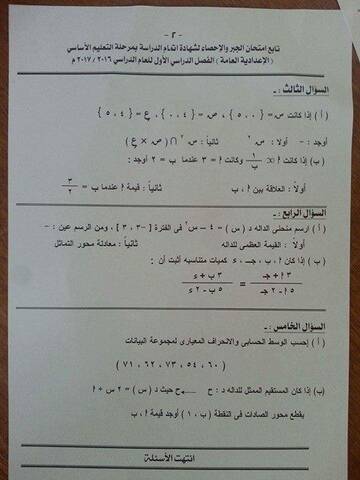 - ٢ -
تابع امتحان الجبر والإحصاء لشهادة اتمام الدراسة بمرحلة التعليم الأساسي
( الإعدادية العامة ) الفصل الدراسي الأول للعام الدراسي ٢٠١٦ / ٢٠١٧ م
السؤال الثالث : -
( أ ) إذا كانت س = { ٥ ، ٠ } ، ص = { ٤ ، ٠ } ، ع = { ٤ ، ٥ }
أوجد : - أولاً : س٢ ثانياً : ص٢ ∩ ( ص × ع )
( ب ) إذا كانت أ ∝ ١/ب وكانت أ = ٣ عندما ب = ٢ أوجد :
أولاً : العلاقة بين أ ، ب ثانياً : قيمة أ عندما ب = ٣/٢
السؤال الرابع : -
( أ ) ارسم منحنى الداله د ( س ) = ٤ – س٢ في الفترة [ -٣ ، ٣ ] ، ومن الرسم عين : -
أولاً : القيمة العظمى للداله ثانياً : معادلة محور التماثل
( ب ) إذا كان أ ، ب ، جـ ، ء كميات متناسبه أثبت أن :
٣ أ + جـ / ٥ أ - ٢ جـ = ٣ ب + ء / ٥ ب - ٢ ء
السؤال الخامس : -
( أ ) إحسب الوسط الحسابى والانحراف المعيارى لمجموعة البيانات
( ٧١ ، ٦٢ ، ٧٣ ، ٥٤ ، ٦٠ )
(ب) إذا كان المستقيم الممثل للداله د : ح ← ح حيث د ( س ) = ٢ س + أ
يقطع محور الصادات فى النقطة ( ب ، ١ ) أوجد قيمة أ ، ب
انتهت الأسئلة